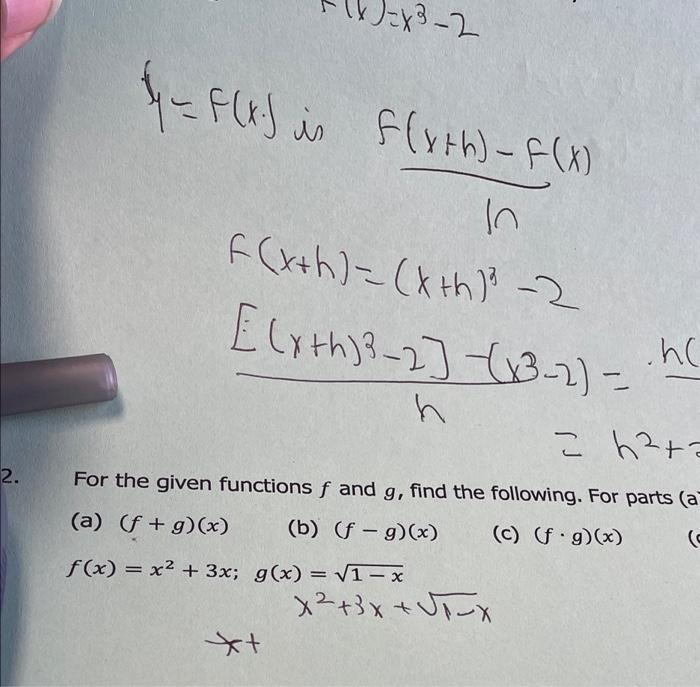 F(x)=x³-2
y=F(x) is F(x+h)-F(x)
h
F(x+h)=(x+h)³-2
[(x+h)³-2]-(x³-2) = h(
h
= h²+
2. For the given functions f and g, find the following. For parts (a
(a) (f + g)(x) (b) (f − g)(x) (c) (f · g)(x) (
f(x) = x² + 3x; g(x) = √1 − x
x²+3x+√1-x
x+